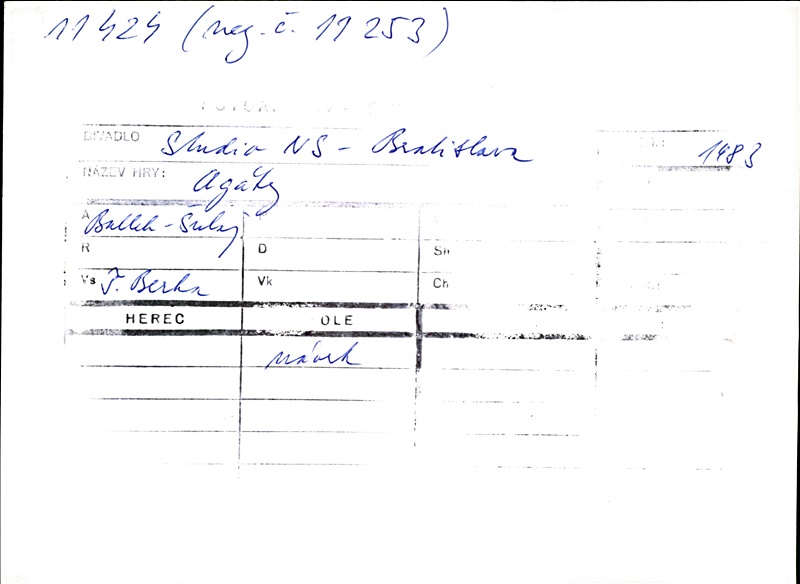 11424 (neg. č. 11 253)
DIVADLO Studio NS - Bratislava 1983
NÁZEV HRY: Agáty
A Ballek - Šulaj
R D Sn
Vs J. Berka Vk Ch
HEREC OLE
návrh